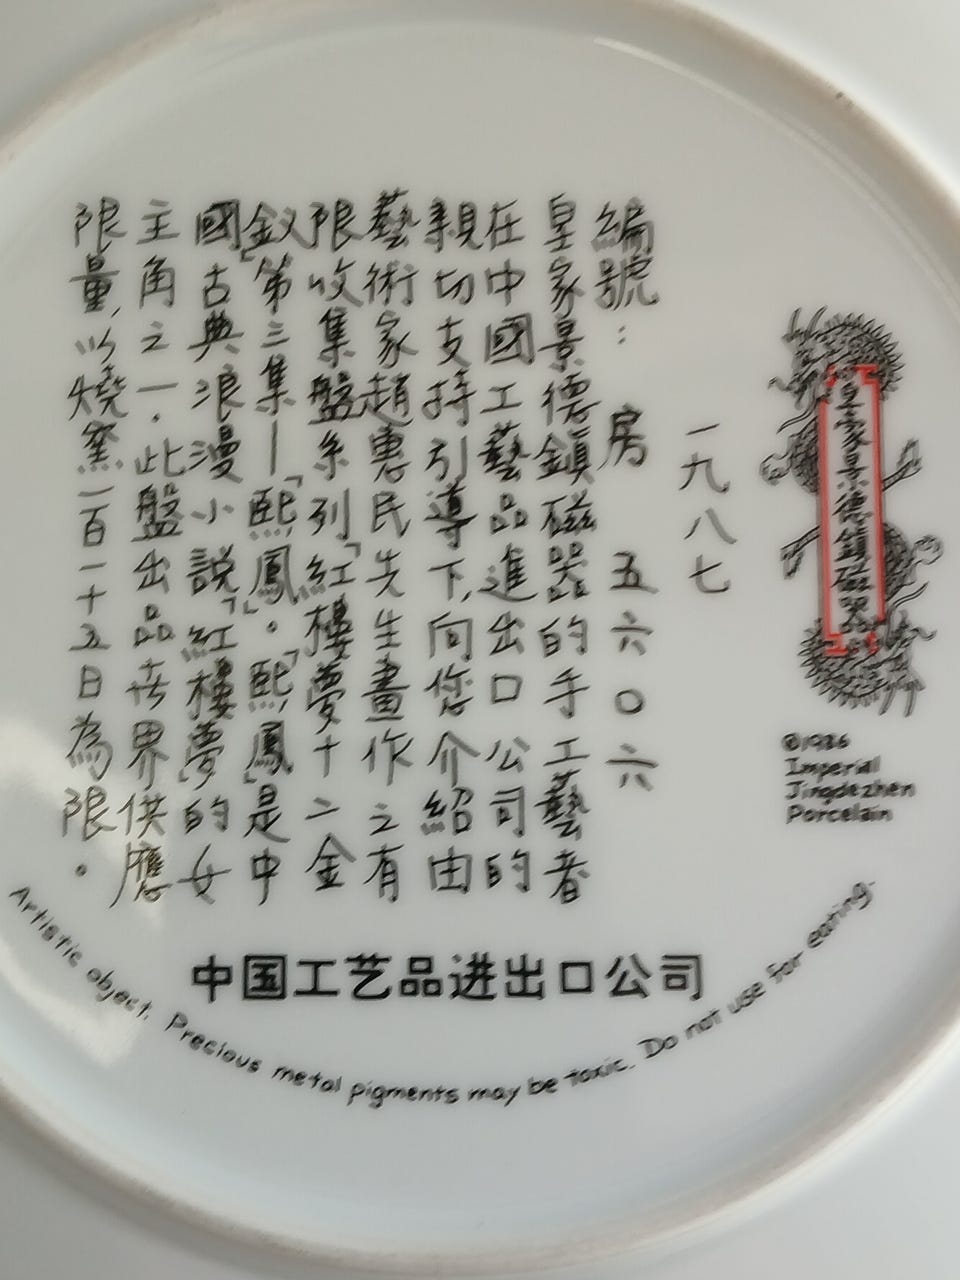 皇家景德鎮磁器
©1986
Imperial
Jingdezhen
Porcelain
一九八七
編號：房五六〇六
皇家景德鎮磁器的手工藝者
在中國工藝品進出口公司的
親切支持引導下，向您介紹由
藝術家趙惠民先生畫作之有
限收集盤系列「紅樓夢十二金
釵」第三集—「熙鳳」。「熙鳳」是中
國古典浪漫小說「紅樓夢」的女
主角之一．此盤出品在世界供應
限量，以燒窯一百一十五日為限。
中国工艺品进出口公司
Artistic object. Precious metal pigments may be toxic. Do not use for eating.